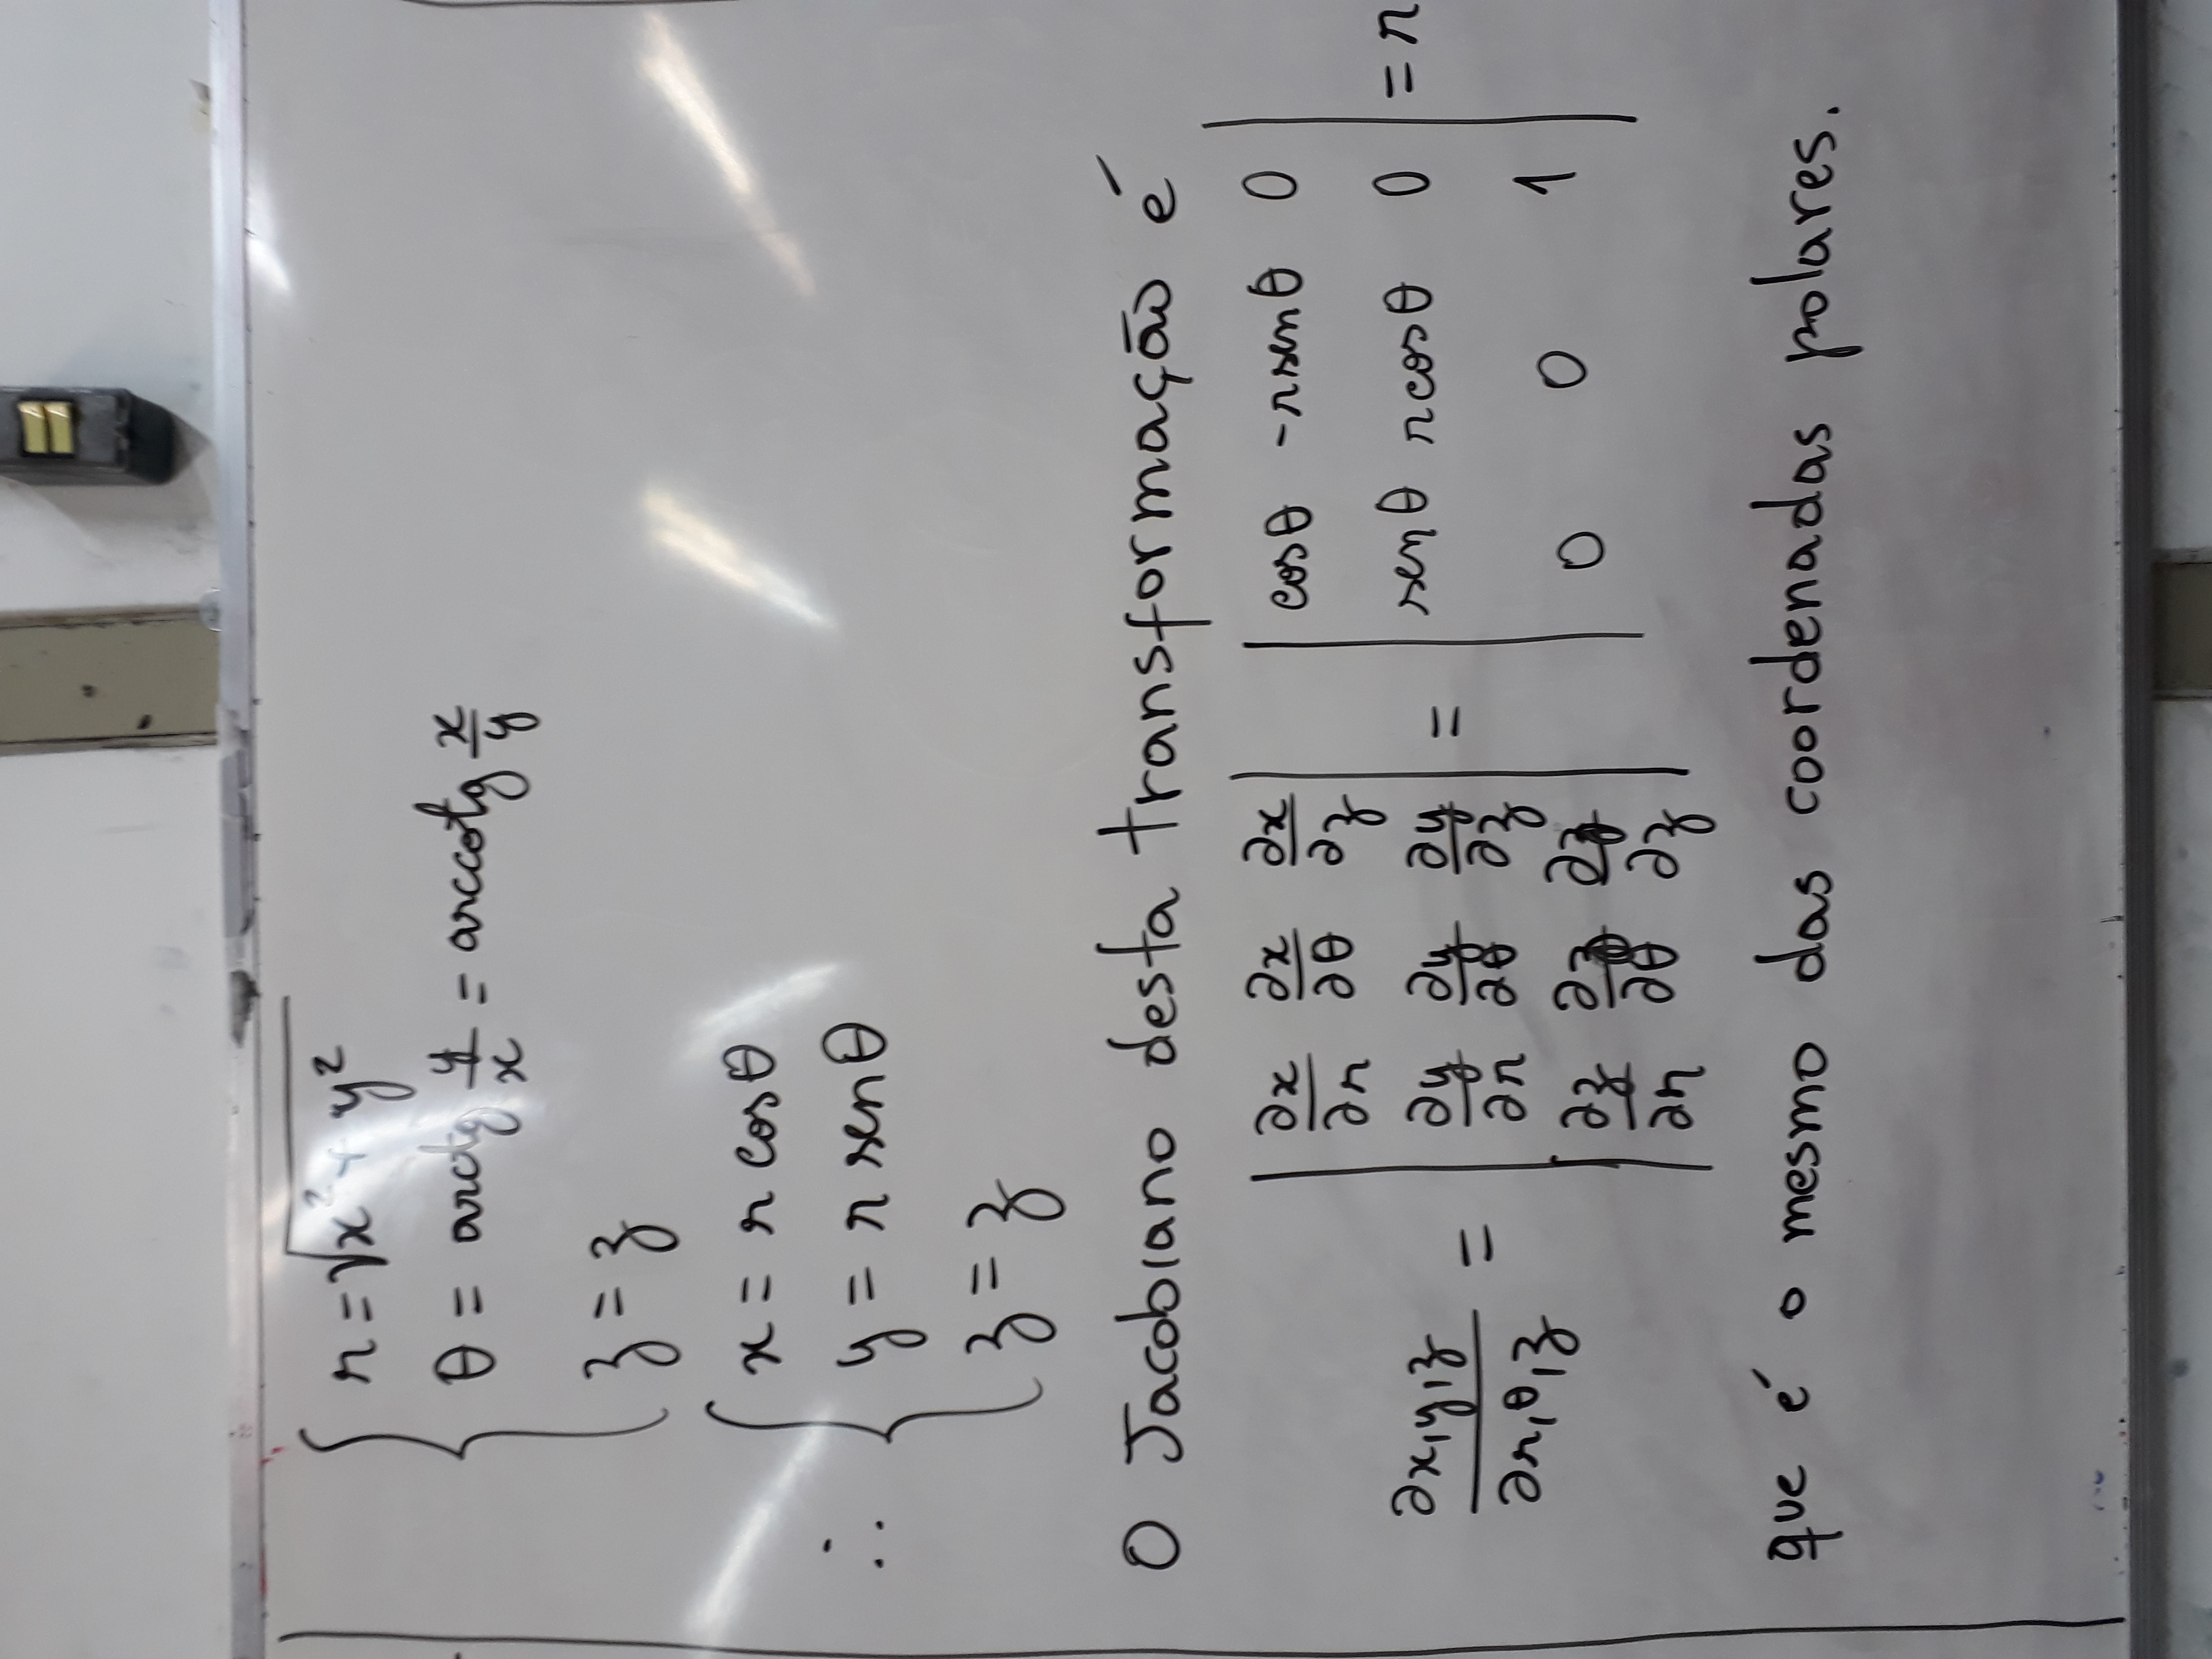 r = √x² + y²
θ = arctg y/x = arccotg x/y
z = z
x = r cosθ
∴ y = r senθ
z = z
O Jacobiano desta transformação é
∂x,y,z/∂r,θ,z = | ∂x/∂r ∂x/∂θ ∂x/∂z | = | cosθ -rsenθ 0 | = r
| ∂y/∂r ∂y/∂θ ∂y/∂z | | senθ rcosθ 0 |
| ∂z/∂r ∂z/∂θ ∂z/∂z | | 0 0 1 |
que é o mesmo das coordenadas polares.